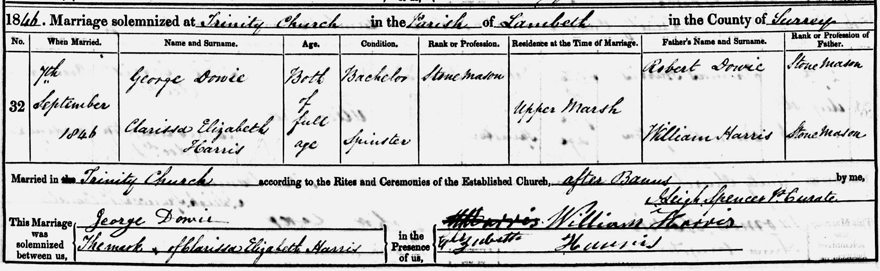 1846. Marriage solemnized at Trinity Church in the Parish of Lambeth in the County of Surrey
No. When Married. Name and Surname. Age. Condition. Rank or Profession. Residence at the Time of Marriage. Father's Name and Surname. Rank or Profession of Father.
32 7th September 1846 George Dowie Both of full age Bachelor Stone Mason Upper Marsh Robert Dowie Stone Mason
Clarissa Elizabeth Harris Spinster William Harris Stone Mason
Married in the Trinity Church according to the Rites and Ceremonies of the Established Church, after Banns by me,
Leigh Spencer Pt. Curate
This Marriage was solemnized between us, George Dowie in the Presence of us, William Harris
The mark of Clarissa Elizabeth Harris